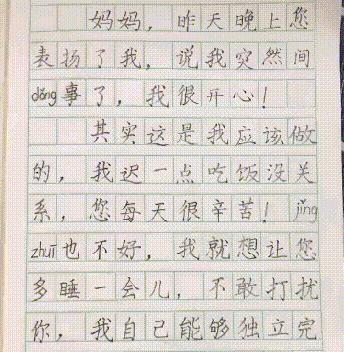 妈妈，昨天晚上您
表扬了我，说我突然间
dǒng事了，我很开心！
其实这是我应该做
的，我迟一点吃饭没关
系，您每天很辛苦！jǐng
zhuī也不好，我就想让您
多睡一会儿，不敢打扰
你，我自己能够独立完